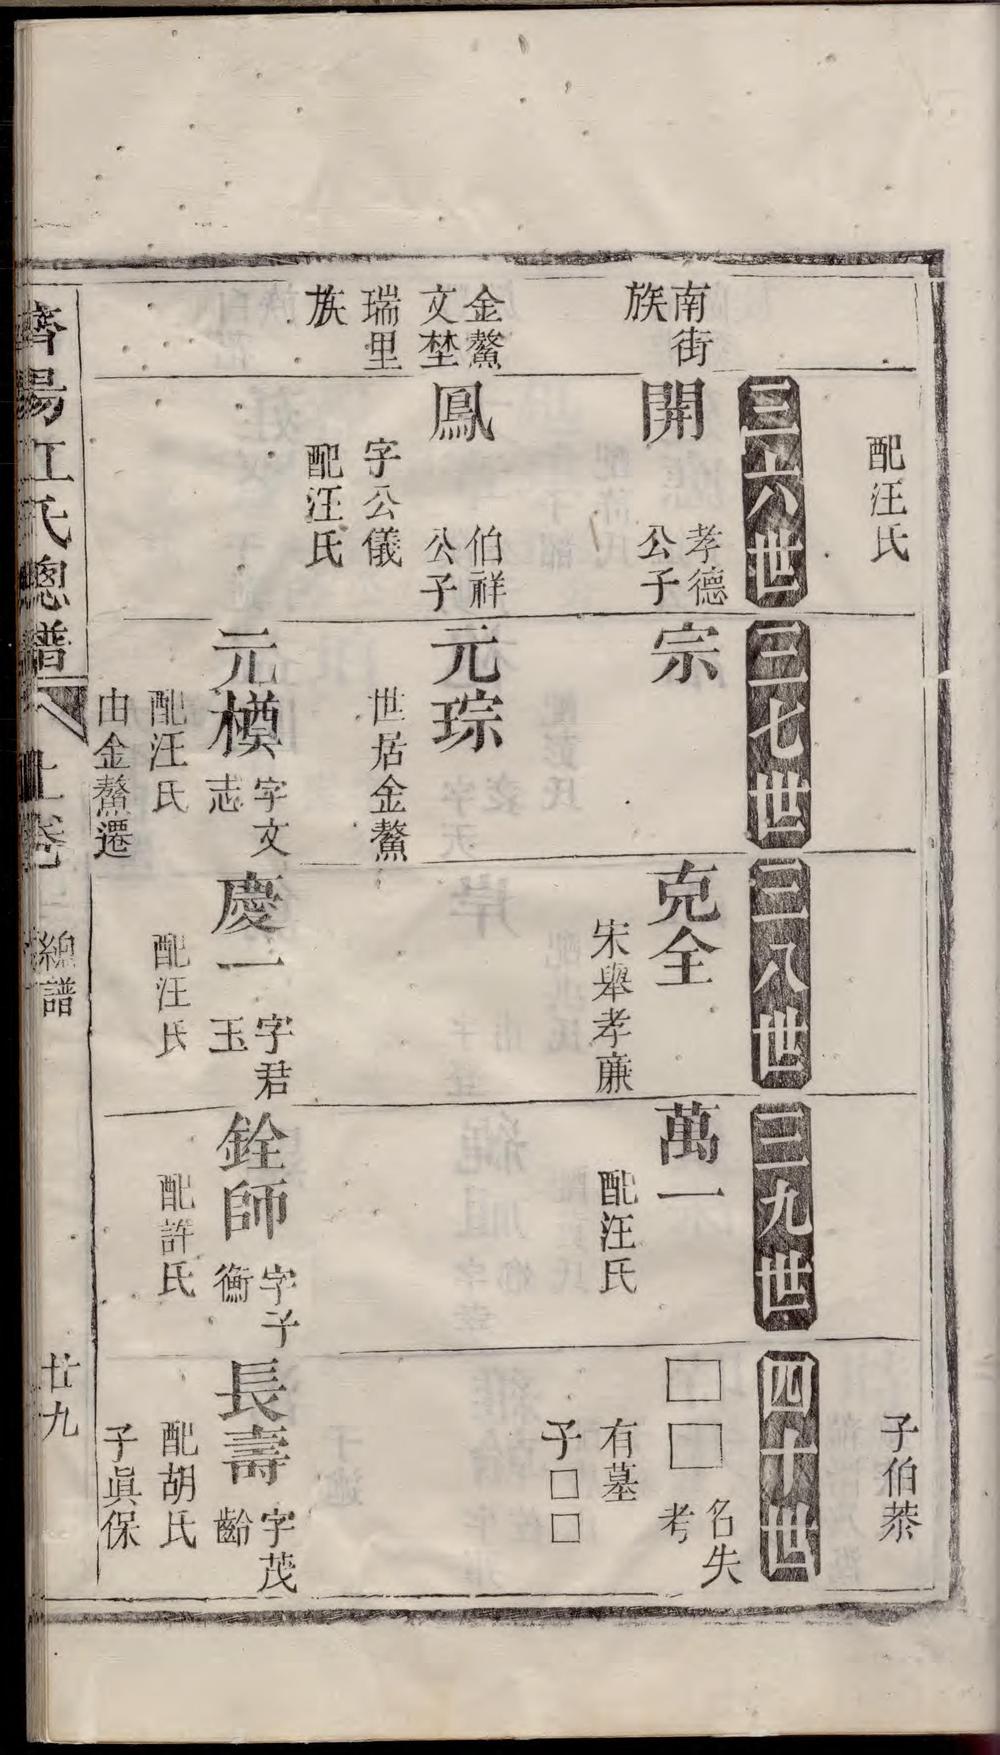 配汪氏
子伯恭
三六世
三七世
三八世
三九世
四十世
南街
族
開
孝德
公子
宗
克全
宋舉孝廉
萬一
配汪氏
□□
名失
考
有墓
子□□
金鰲
文埜
瑞里
族
鳳
伯祥
公子
字公儀
配汪氏
元琮
世居金鰲
元橂
字文
志
配汪氏
由金鰲遷
慶一
字君
玉
配汪氏
銓師
字子
衡
配許氏
長壽
字茂
齡
配胡氏
子眞保
濟陽江氏總譜
上卷
總譜
廿九